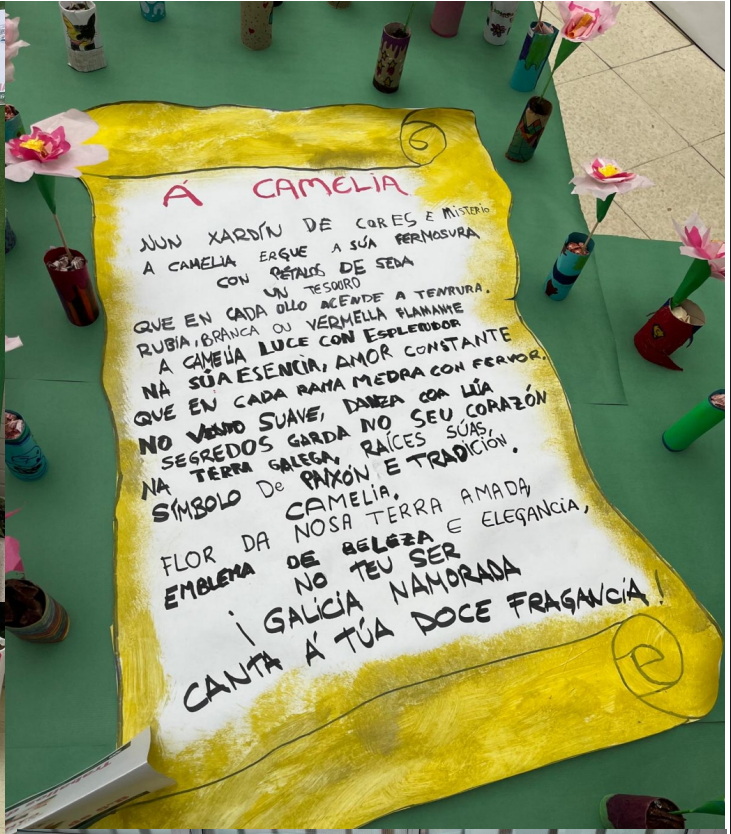 Á CAMELIA
NUN XARDÍN DE CORES E MISTERIO
A CAMELIA ERGUE A SÚA FERMOSURA
CON PÉTALOS DE SEDA
UN TESOURO
QUE EN CADA OLLO ACENDE A TENRURA.
RUBIA, BRANCA OU VERMELLA FLAMANTE
A CAMELIA LUCE CON ESPLENDOR
NA SÚA ESENCIA, AMOR CONSTANTE
QUE EN CADA RAMA MEDRA CON FERVOR.
NO VENTO SUAVE, DANZA COA LÚA
SEGREDOS GARDA NO SEU CORAZÓN
NA TERRA GALEGA, RAÍCES SÚAS,
SÍMBOLO DE PAIXÓN E TRADICIÓN.
CAMELIA,
FLOR DA NOSA TERRA AMADA,
EMBLEMA DE BELEZA E ELEGANCIA,
NO TEU SER
¡GALICIA NAMORADA
CANTA Á TÚA DOCE FRAGANCIA!